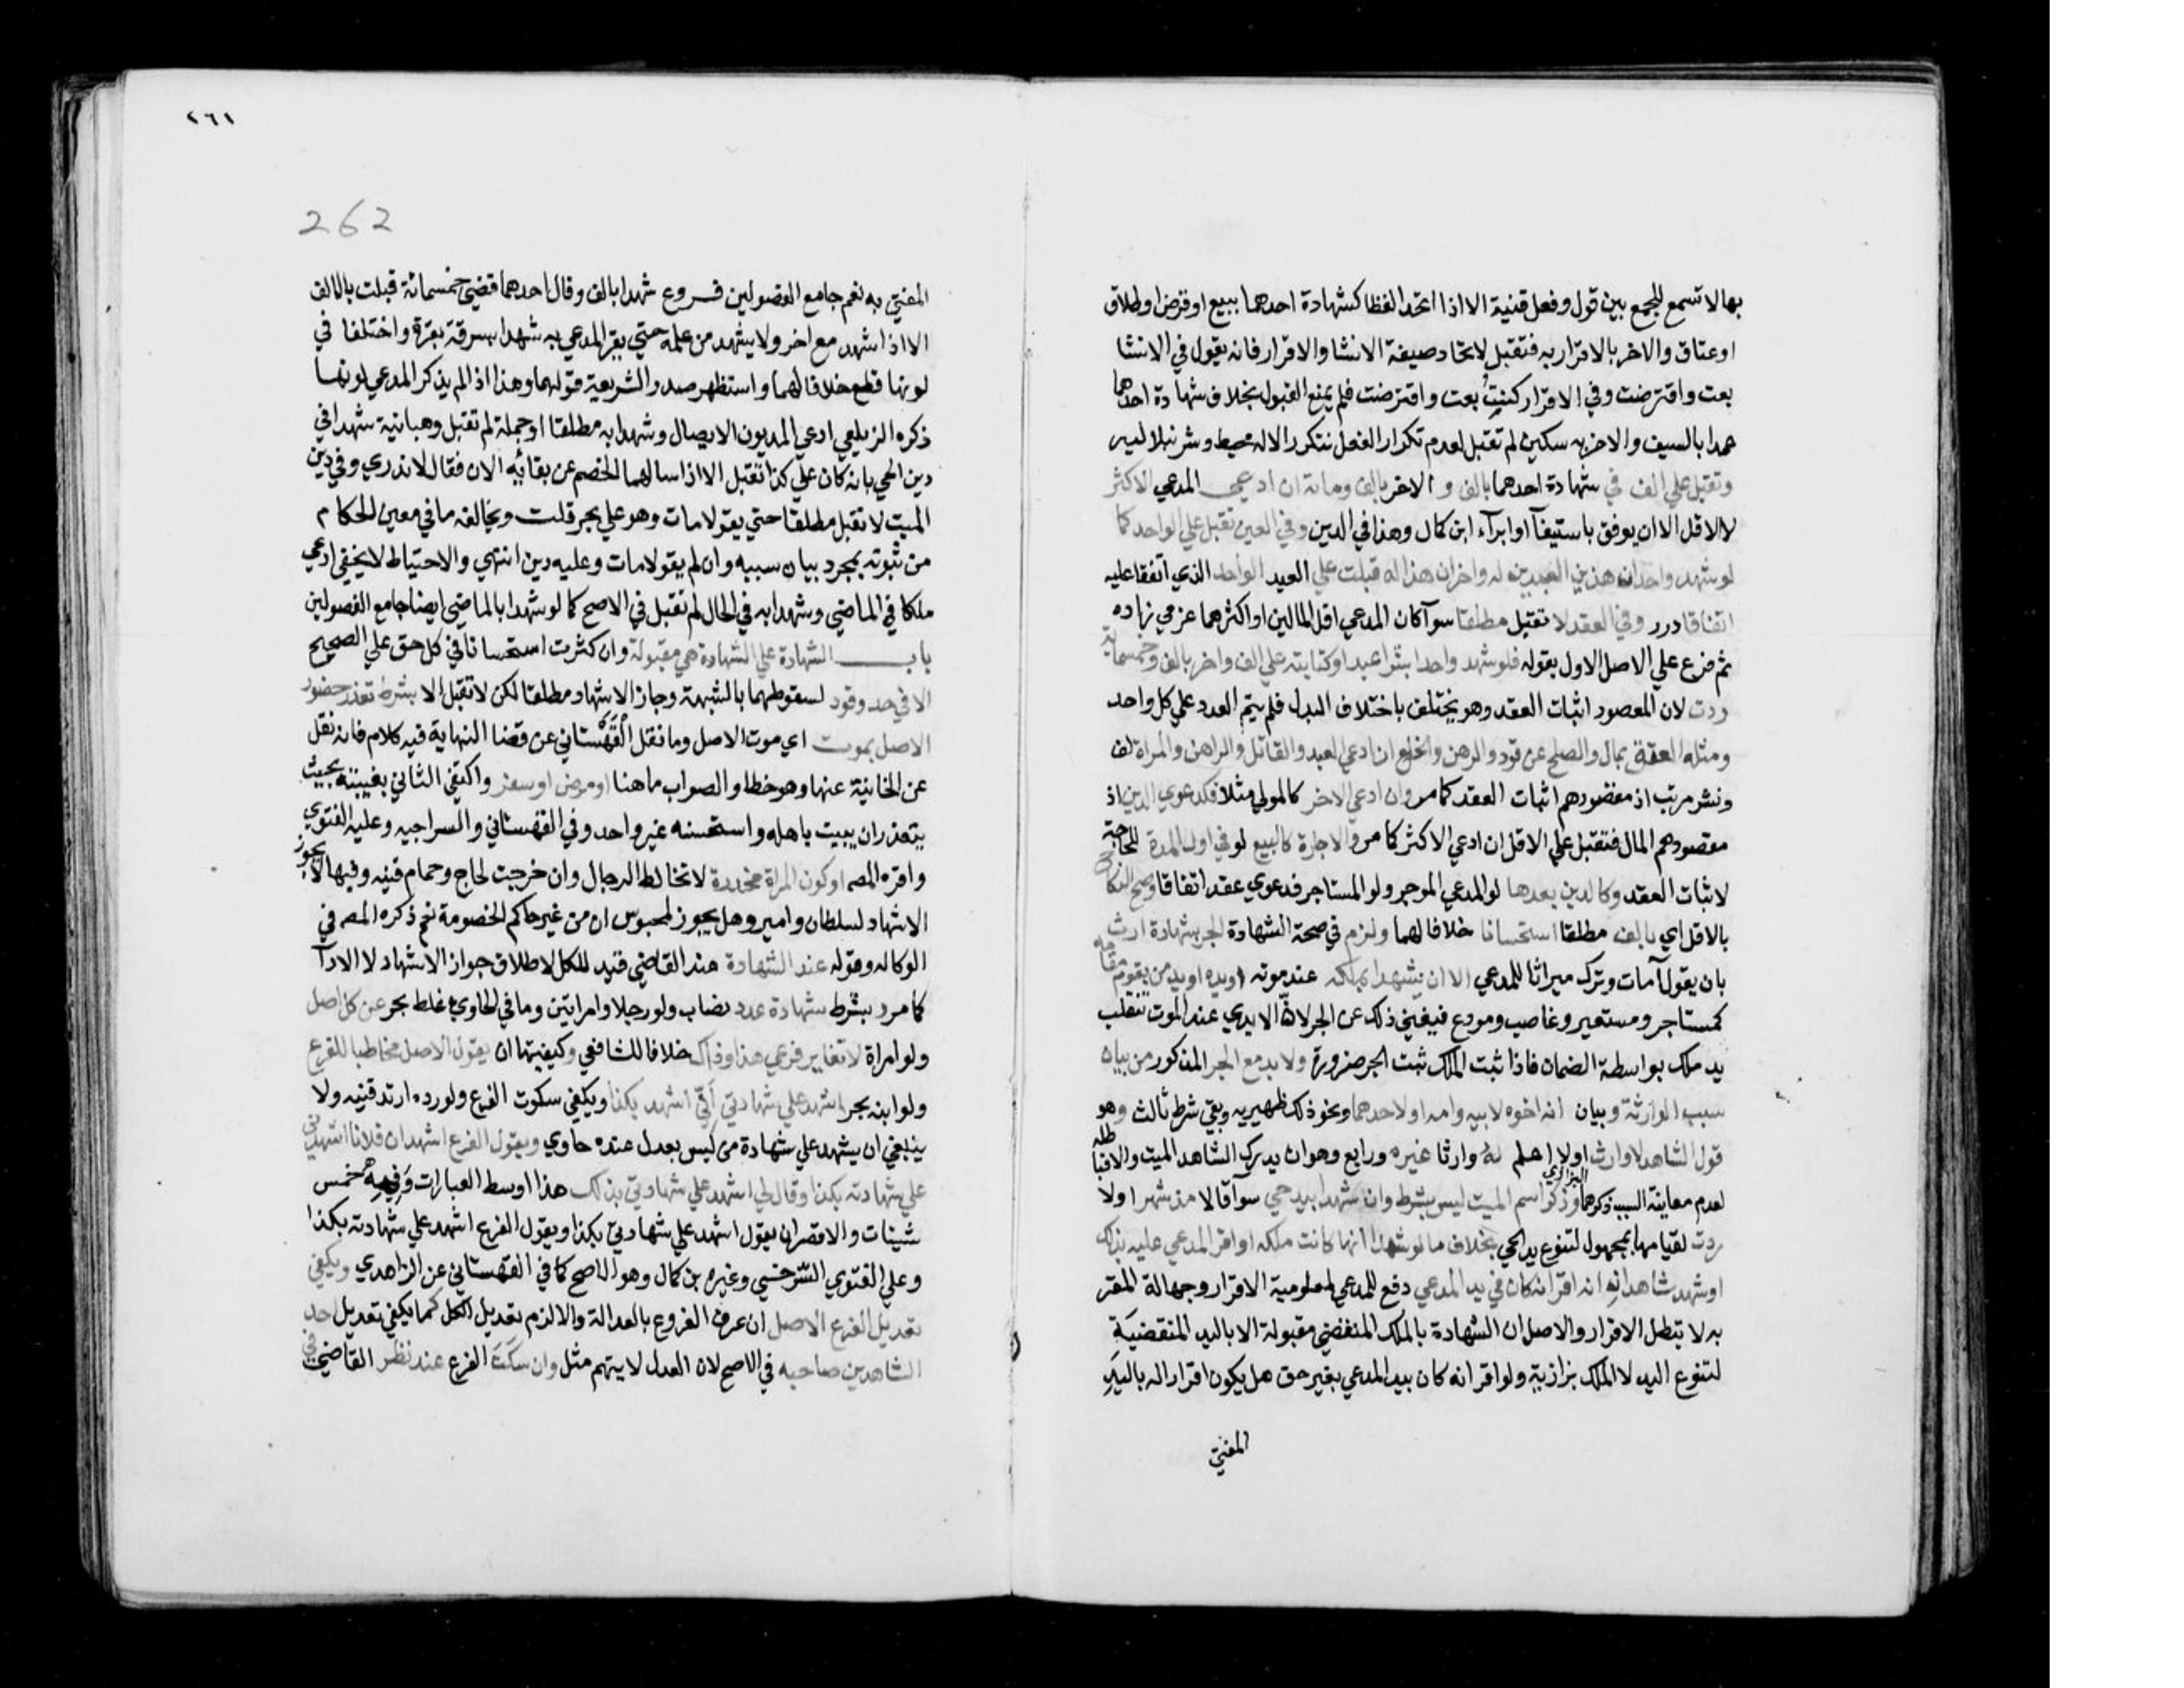 بها لا تسمع للجمع بين قول وفعل قنية الا اذا اتحدا لفظا كشهادة احدهما ببيع او قرض او طلاق
او عتاق والاخر بالاقرار به فتقبل لاتحاد صيغة الانشا والاقرار فانه يقول في الانشا
بعت واقترضت وفي الاقرار كنت بعت واقترضت فلم يمنع القبول بخلاف شهادة احدهما
عمدا بالسيف والاخر به سكين لم تقبل لعدم تكرار الفعل بتكرر الاله محيط وشرنبلاليه
وتقبل علي الف في شهادة احدهما بالف والاخر بالف ومائة ان ادعي المدعي الاكثر
لا الاقل الا ان يوفق باستيفآ او ابرآء ابن كمال وهذا في الدين وفي العين تقبل علي الواحد كما
لو شهد واحد ان هذين العبدين له واخر ان هذا له قبلت علي العبد الواحد الذي اتفقا عليه
اتفاقا درر وفي العقد لا تقبل مطلقا سوآ كان المدعي اقل المالين او اكثرهما عزمي زاده
ثم فرع علي الاصل الاول بقوله فلو شهد واحد بشرا عبد او كتابته علي الف واخر بالف وخمسماية
ردت لان المقصود اثبات العقد وهو يختلف باختلاف البدل فلم يتم العدد علي كل واحد
ومثله العتق بمال والصلح عن قود والرهن والخلع ان ادعي العبد والقاتل والراهن والمراة لف
ونشر مرتب اذ مقصودهم اثبات العقد كما مر وان ادعي الاخر كالمولي مثلا فكدعوي الدين اذ
مقصودهم المال فتقبل علي الاقل ان ادعي الاكثر كما مر والاجارة كالبيع لو في اول المدة للحاجة
لاثبات العقد وكالدين بعدها لو المدعي الموجر ولو المستاجر فدعوي عقد اتفاقا وصح النكاح
بالاقل اي بالف مطلقا استحسانا خلافا لهما ولزم في صحة الشهادة الجر بشهادة ارث
بان يقولا مات وترك ميراثا للمدعي الا ان يشهدا بملكه عند موته او يده او يد من يقوم مقامه
كمستاجر ومستعير وغاصب ومودع فيغني ذلك عن الجر لان الايدي عند الموت تنقلب
يد ملك بواسطة الضمان فاذا ثبت الملك ثبت الجر ضرورة ولا بد مع الجر المذكور من بيان
سبب الوراثة وبيان انه اخوه لابيه وامه او لاحدهما ونحو ذلك ظهيريه وبقي شرط ثالث وهو
قول الشاهد لا وارث او لا اعلم له وارثا غيره ورابع وهو ان يدرك الشاهد الميت والا فباطله
لعدم معاينة السبب ذكرهما البزازي وذكر اسم الميت ليس بشرط وان شهدا بيد حي سوآ قالا مذ شهر او لا
ردت لقيامها بمجهول لتنوع يد الحي بخلاف ما لو شهدا انها كانت ملكه او اقر المدعي عليه بذلك
او شهد شاهدان انه اقر انه كان في يد المدعي دفع للمدعي لمعلومية الاقرار وجهالة المقر
به لا تبطل الاقرار والاصل ان الشهادة بالملك المنقضي مقبولة لا باليد المنقضية
لتنوع اليد لا الملك بزازية ولو اقر انه كان بيد المدعي بغير حق هل يكون اقرارا له باليد
المفتي
٢٦١
262
المفتي به نعم جامع الفصولين فروع شهدا بالف وقال احدهما قضي خمسمائة قبلت بالالف
الا اذا شهد مع اخر ولا يشهد من علمه حتي يقر المدعي به شهدا بسرقة بقرة واختلفا في
لونها قطع خلافا لهما واستظهر صدر الشريعة قولهما وهذا اذا لم يذكر المدعي لونها
ذكره الزيلعي ادعي المديون الايصال وشهدا به مطلقا او جملة لم تقبل وهبانية شهدا في
دين الحي بانه كان علي كذا تقبل الا اذا سالهما الخصم عن بقائه الان فقالا لا ندري وفي دين
الميت لا تقبل مطلقا حتي يقولا مات وهو عليه بحر قلت ويخالفه ما في معين الحكام
من ثبوته بمجرد بيان سببه وان لم يقولا مات وعليه دين انتهي والاحتياط لا يخفي ادعي
ملكا في الماضي وشهدا به في الحال لم تقبل في الاصح كما لو شهدا بالماضي ايضا جامع الفصولين
باب الشهادة علي الشهادة هي مقبولة وان كثرت استحسانا في كل حق علي الصحيح
الا في حد وقود لسقوطهما بالشبهة وجاز الاشهاد مطلقا لكن لا تقبل الا بشرط تعذر حضور
الاصل بموت اي موت الاصل وما نقل القهستاني عن قضا النهاية فيه كلام فانه نقل
عن الخانية عنها وهو خطا والصواب ما هنا او مرض او سفر واكتفي الثاني بغيبته بحيث
يتعذر ان يبيت باهله واستحسنه غير واحد وفي القهستاني والسراجيه وعليه الفتوي
واقره المصه او كون المراة مخدرة لا تخالط الرجال وان خرجت لحاج وحمام قنيه وفيها لا يجوز
الاشهاد لسلطان وامير وهل يجوز لمحبوس ان من غير حاكم الخصومة نعم ذكره المصه في
الوكاله وقوله عند الشهادة عند القاضي قيد للكل لاطلاق جواز الاشهاد لا الادآ
كما مر وبشرط شهادة عدد نصاب ولو رجلا وامراتين وما في الحاوي غلط بحر عن كل اصل
ولو امراة لا تغاير فرعي هذا وذاك خلافا للشافعي وكيفيتها ان يقول الاصل مخاطبا للفرع
ولو ابنه بحر اشهد علي شهادتي اني اشهد بكذا ويكفي سكوت الفرع ولو رده ارتد قنيه ولا
ينبغي ان يشهد علي شهادة من ليس بعدل عنده حاوي ويقول الفرع اشهد ان فلانا اشهدني
علي شهادته بكذا وقال لي اشهد علي شهادتي بذلك هذا اوسط العبارات وفيه خمس
شينات والاقصر ان يقول اشهد علي شهادتي بكذا ويقول الفرع اشهد علي شهادته بكذا
وعليه الفتوي السرخسي وغيره بن كمال وهو الاصح كما في القهستاني عن الزاهدي ويكفي
تعديل الفرع الاصل ان عرف الفروع بالعدالة والا لزم تعديل الكل كما يكفي تعديل احد
الشاهدين صاحبه في الاصح لان العدل لا يتهم مثله وان سكت الفرع عنه نظر القاضي في